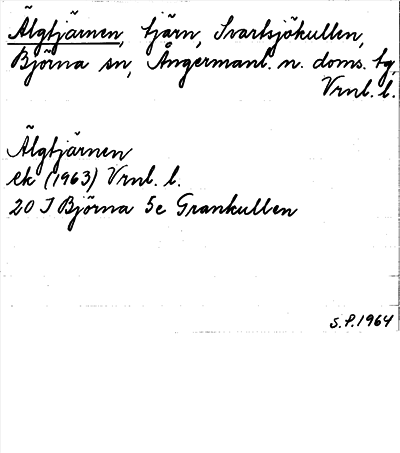 Älgtjärnen, tjärn, Svartsjökullen,
Björna sn, Ångermanl. n. doms. tg,
Vrnl. l.
Älgtjärnen
ek (1963) Vrnl. l.
20 I Björna 5c Grankullen
S.P. 1964